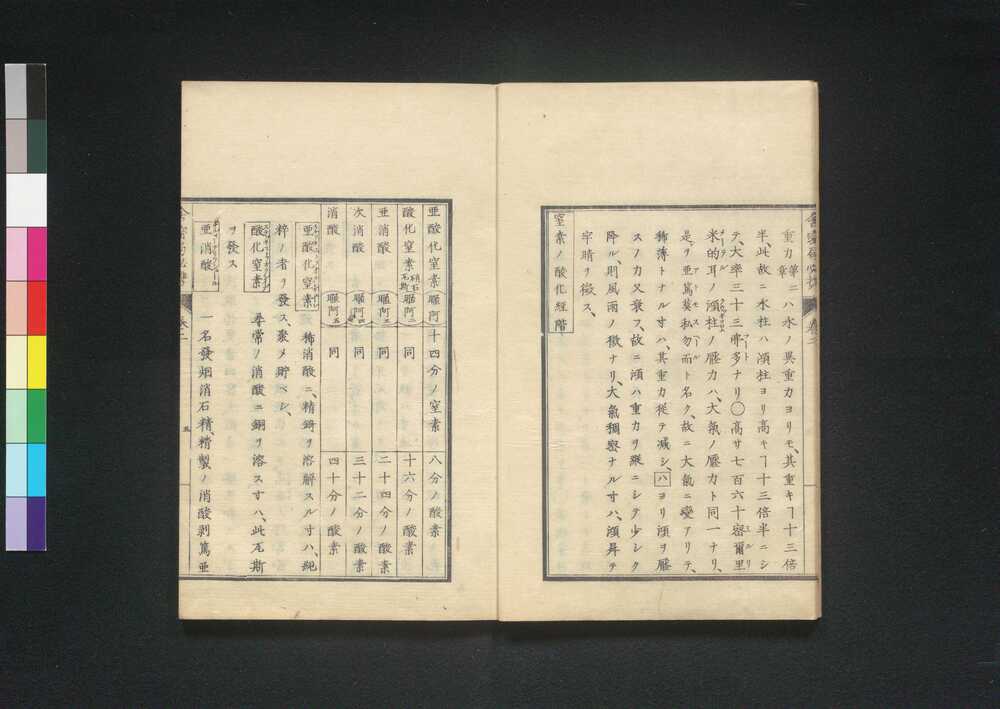 重力ハ水ノ異重力ヨリモ、其重キヿ十三倍
半、此故ニ水柱ハ澒柱ヨリ高キヿ十三倍半ニシ
テ、大率三十三弗多ナリ〇高サ七百六十密爾里
米的耳ノ澒柱ノ壓力ハ、大氣ノ壓力ト同一ナリ、
是ヲ亜莫私勿而ト名ク、故ニ大氣ニ變アリテ、
稀薄トナル寸ハ、其重力從テ減シ、ハヨリ澒ヲ壓
スノ力又衰フ、故ニ澒ハ重力ヲ縦ニシテ少シク
降ル、則風雨ノ徴ナリ、大氣稠密ナル寸ハ、澒昇テ
牢晴ヲ徴ス、
窒素ノ酸化經階
亜酸化窒素 䏈阿 十四分ノ窒素 八分ノ酸素
酸化窒素 硝石瓦斯 䏈阿二 同 十六分ノ酸素
亜消酸 䏈阿三 同 二十四分ノ酸素
次消酸 䏈阿四 同 三十二分ノ酸素
消酸 䏈阿五 同 四十分ノ酸素
亜酸化窒素 稀消酸ニ、精錡ヲ溶解スル寸ハ、純
粹ノ者ヲ發ス、聚メ貯ベシ、
酸化窒素 尋常ノ消酸ニ銅ヲ溶ス寸ハ、此瓦斯
ヲ發ス
亜消酸 一名發烟消石精、精製ノ消酸剥篤亜
卷二
五